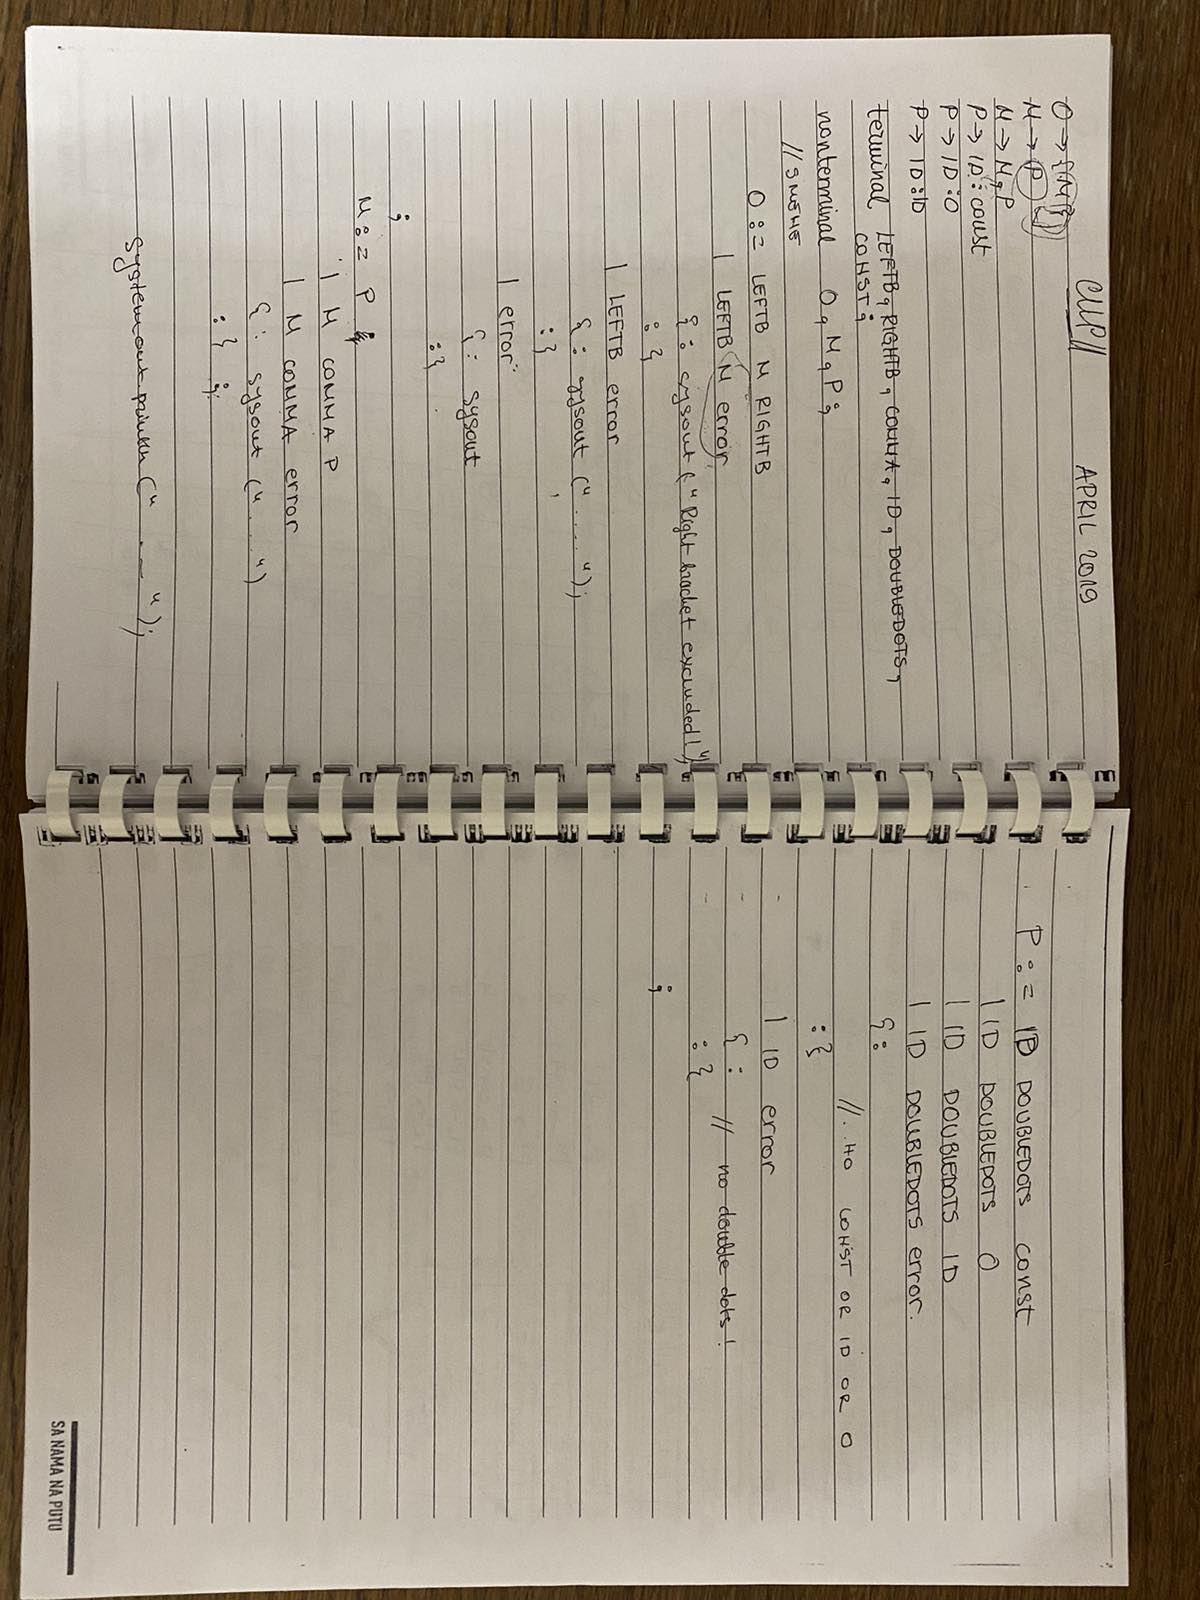 CUP// APRIL 2019
O → {M}
M → P
M → M, P
P → ID: const
P → ID: O
P → ID: ID
terminal LEFTB, RIGHTB, COMMA, ID, DOUBLEDOTS,
CONST;
nonterminal O, M, P;
//SMEME
O ::= LEFTB M RIGHTB
| LEFTB M error
{: sysout("Right bracket excluded!")
:}
| LEFTB error
{: sysout("....");
:}
| error
{: sysout
:}
;
M ::= P
| M COMMA P
| M COMMA error
{: sysout("....")
:} ;
System.out.println(" ");
P ::= ID DOUBLEDOTS const
| ID DOUBLEDOTS O
| ID DOUBLEDOTS ID
| ID DOUBLEDOTS error.
{:
//.. NO CONST OR ID OR O
:}
| ID error
{: // no double dots!
:}
;
SA NAMA NA PUTU